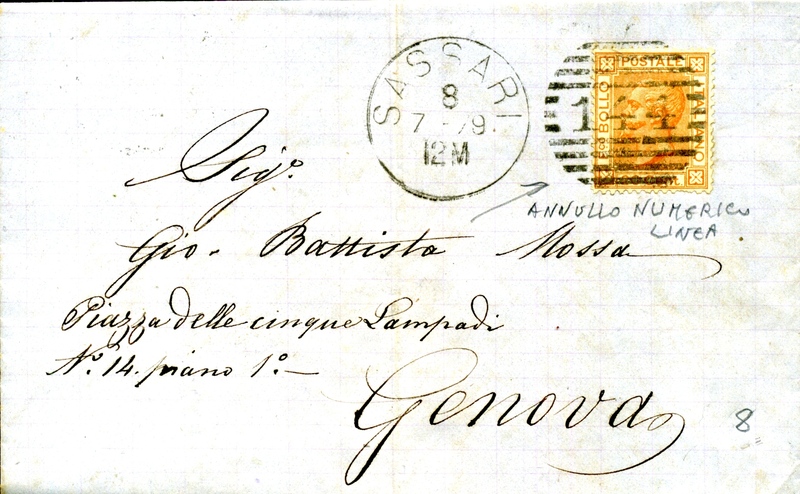 SASSARI
8
7 - 79
12M
POSTALE
BOLLO
ITALIANO
144
ANNULLO NUMERICO
LINEA
Sigr.
Gio. Battista Mossa
Piazza delle cinque Lampadi
No. 14. piano 1o. —
Genova
8